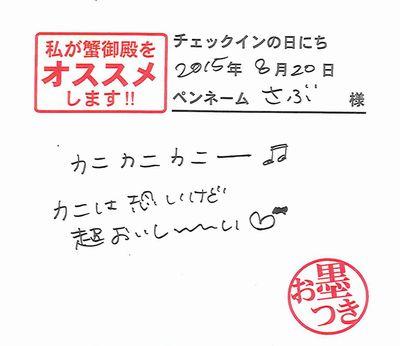 私が蟹御殿を
オススメ
します!!
チェックインの日にち
2015年 8月20日
ペンネーム さぶ 様
カニ カニ カニー♫
カニは恐いけど
超おいし〜〜い
お墨つき